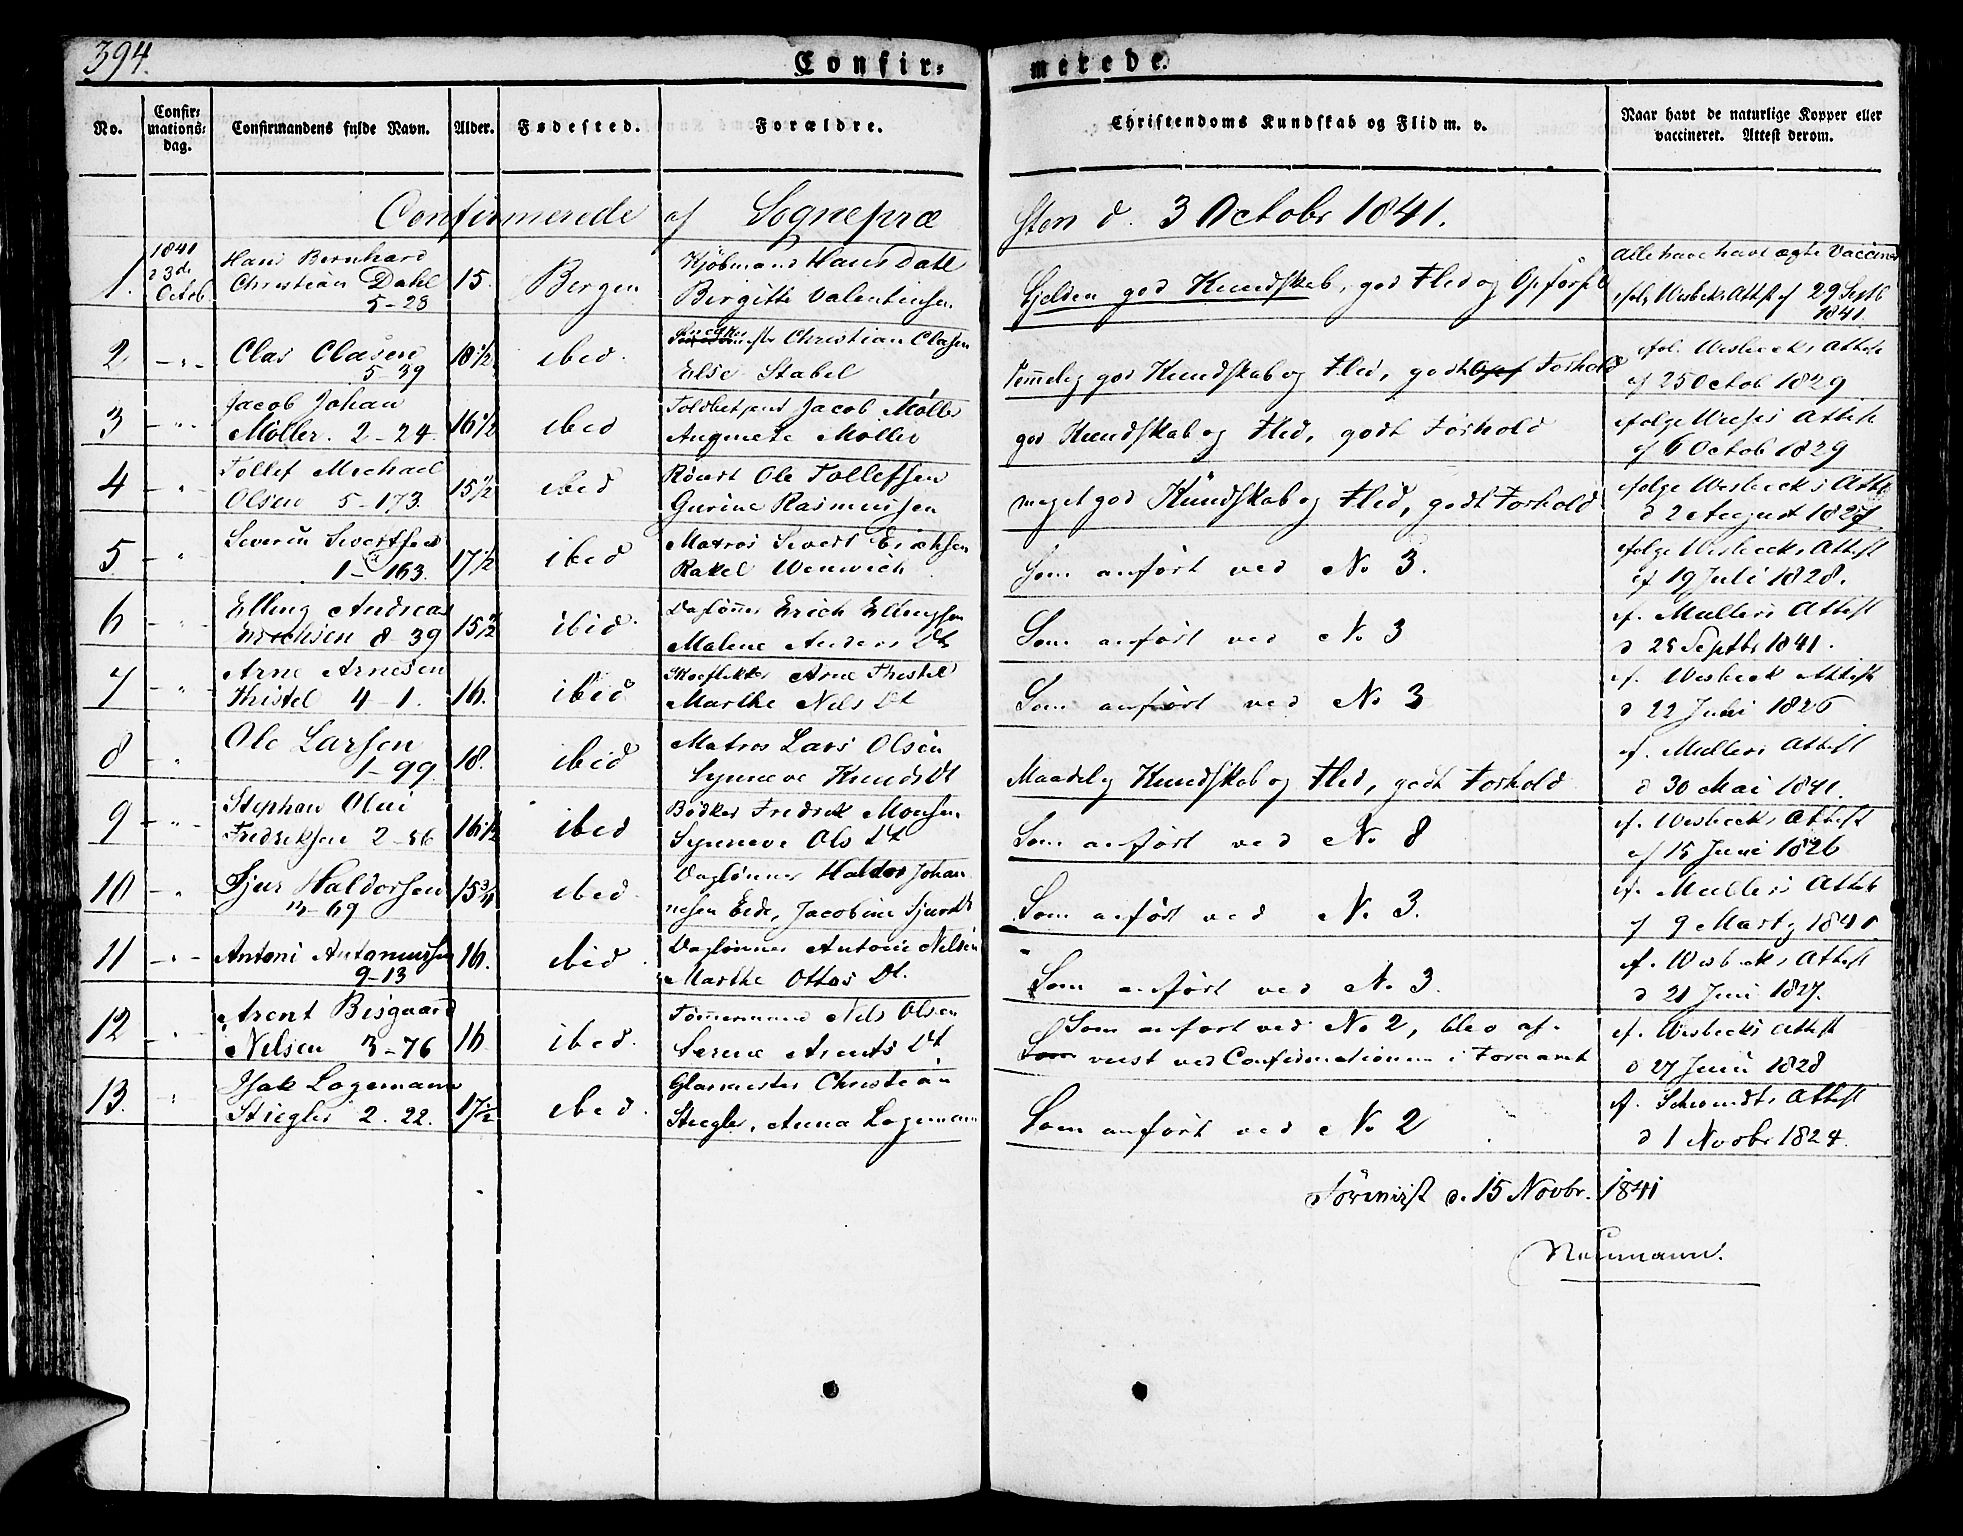 394.
Confir= merede.
No.
Confir=
mations=
dag.
Confirmandens fulde Navn.
Alder.
Fødested.
Forældre.
Christendoms Kundskab og Flid m. v.
Naar havt de naturlige Kopper eller
vaccineret. Attest derom.
Confirmerede af Sognepræ sten d. 3 Octobr 1841.
1841
1. d 3de Octob
Hans Bernhard
Christian Dahl
5-28
15. Bergen
Kjöbmand Hans Dahl
Birgitte Valentinsen
god Kundskab, god Flid og Opförsel
Alle have havt ægte Vacciner
Wisbecks Attst af 29 Septb
1841
2 - " - Clas Clasen
5-39
18 1/2 ibid.
Christian Clasen
Else Stabel
Temmelig god Kundskab og Flid, godt Forhold
efol. Wisbecks Attst
af 25 Octob 1829
3 - " - Jacob Johan
Möller. 2-24.
16 1/2 ibid
Toldbetjent Jacob Möller
Möller
god Kundskab og Flid, godt Forhold
efolge Attst
af 6 Octob 1829
4 - " Tollef Michael
Olsen 5-173.
15 1/2 ibid
Ole Tollefsen
Gurine Rasmussen
meget god Kundskab og Flid, godt Forhold
efolge Wisbecks Attst
d 2 August 1827
5 " Severin Sivertsen
1-163.
17 1/2 ibid
Matros Sivert Erichsen
Rakel Wenwich
Som anfört ved No 3.
efolge Wisbecks Attest
af 19 Juli 1828.
6 - " - Elling Andreas
Erichsen 8-39
15 1/2 ibid.
Daglönner Erich Ellingsen
Malene Anders Dt
Som anfört ved No 3
ef. Mullers Attest
d 25 Septbr 1841.
7 - " Arne Arnesen
Thistel 4-1.
16. ibid
Skoeflikker Arne Thistel
Marthe Nels Dt
Som anfört ved No 3
ef. Wisbeck Attest
d 22 Juli 1826
8 - " Ole Larsen
1-99
18. ibid
Matros Lars Olsen
Synneve Knuds Dt
Maadelig Kundskab og Flid, godt Forhold
ef. Mullers Attest
d 30 Mai 1841.
9 - " - Stephan Olai
Fredriksen 2-86
16 1/2 ibid
Bödker Fredrik Monsen
Synneve Ols Dt
Som anfört ved No 8
ef. Wisbecks Attest
af 15 Juni 1826
10 - " Sjur Haldorsen
3-69
15 3/4 ibid.
Daglönner Haldor Johan
nesen Eide, Jacobine Sjurs Dt
Som anfört ved No 3.
ef. Mullers Attst
af 9 Marty 1841.
11 - " - Antoni Antoniussen
9-13
16. ibid.
Daglönner Antoni Nelsen
Marthe Ottos Dt.
Som anfört ved No 3.
ef. Wisbecks Attest
d 21 Juni 1827.
12 - " Arent Bisgaard
Nelsen 3-76
16 ibid.
Tömmermand Nels Olsen
Serine Arents Dt
Som anfört ved No 2, blev af=
viist ved Confirmationen i Foraaret
ef. Wisbecks Attest
d 27 Juni 1828
13. " Isak Logemann
Stiegler 2.22.
17 1/2 ibid.
Glasmester Christian
Stiegler, Anna Logemann
Som anfört ved No 2
ef. Schwindts Attest
d 1 Novbr 1824.
d. 15 Novbr. 1841
Neumann.